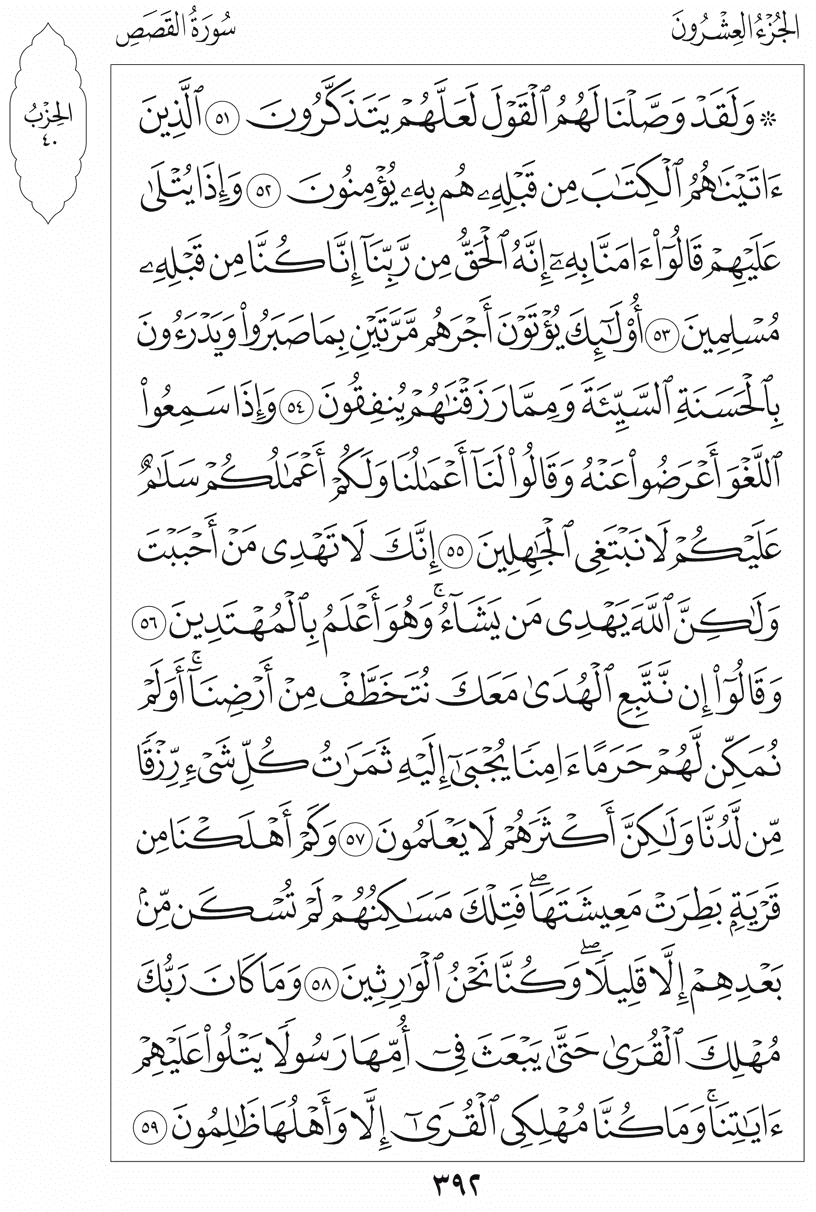 الجُزْءُ العِشْرُونَ
سُورَةُ القَصَصِ
الحِزْبُ
٤٠
* وَلَقَدْ وَصَّلْنَا لَهُمُ ٱلْقَوْلَ لَعَلَّهُمْ يَتَذَكَّرُونَ ٥١ ٱلَّذِينَ
ءَاتَيْنَٰهُمُ ٱلْكِتَٰبَ مِن قَبْلِهِۦ هُم بِهِۦ يُؤْمِنُونَ ٥٢ وَإِذَا يُتْلَىٰ
عَلَيْهِمْ قَالُوٓا۟ ءَامَنَّا بِهِۦٓ إِنَّهُ ٱلْحَقُّ مِن رَّبِّنَآ إِنَّا كُنَّا مِن قَبْلِهِۦ
مُسْلِمِينَ ٥٣ أُو۟لَٰٓئِكَ يُؤْتَوْنَ أَجْرَهُم مَّرَّتَيْنِ بِمَا صَبَرُوا۟ وَيَدْرَءُونَ
بِٱلْحَسَنَةِ ٱلسَّيِّئَةَ وَمِمَّا رَزَقْنَٰهُمْ يُنفِقُونَ ٥٤ وَإِذَا سَمِعُوا۟
ٱللَّغْوَ أَعْرَضُوا۟ عَنْهُ وَقَالُوا۟ لَنَآ أَعْمَٰلُنَا وَلَكُمْ أَعْمَٰلُكُمْ سَلَٰمٌ
عَلَيْكُمْ لَا نَبْتَغِى ٱلْجَٰهِلِينَ ٥٥ إِنَّكَ لَا تَهْدِى مَنْ أَحْبَبْتَ
وَلَٰكِنَّ ٱللَّهَ يَهْدِى مَن يَشَآءُ ۚ وَهُوَ أَعْلَمُ بِٱلْمُهْتَدِينَ ٥٦
وَقَالُوٓا۟ إِن نَّتَّبِعِ ٱلْهُدَىٰ مَعَكَ نُتَخَطَّفْ مِنْ أَرْضِنَآ ۚ أَوَلَمْ
نُمَكِّن لَّهُمْ حَرَمًا ءَامِنًا يُجْبَىٰٓ إِلَيْهِ ثَمَرَٰتُ كُلِّ شَىْءٍ رِّزْقًا
مِّن لَّدُنَّا وَلَٰكِنَّ أَكْثَرَهُمْ لَا يَعْلَمُونَ ٥٧ وَكَمْ أَهْلَكْنَا مِن
قَرْيَةٍۭ بَطِرَتْ مَعِيشَتَهَا ۖ فَتِلْكَ مَسَٰكِنُهُمْ لَمْ تُسْكَن مِّنۢ
بَعْدِهِمْ إِلَّا قَلِيلًا ۖ وَكُنَّا نَحْنُ ٱلْوَٰرِثِينَ ٥٨ وَمَا كَانَ رَبُّكَ
مُهْلِكَ ٱلْقُرَىٰ حَتَّىٰ يَبْعَثَ فِىٓ أُمِّهَا رَسُولًا يَتْلُوا۟ عَلَيْهِمْ
ءَايَٰتِنَا ۚ وَمَا كُنَّا مُهْلِكِى ٱلْقُرَىٰٓ إِلَّا وَأَهْلُهَا ظَٰلِمُونَ ٥٩
٣٩٢